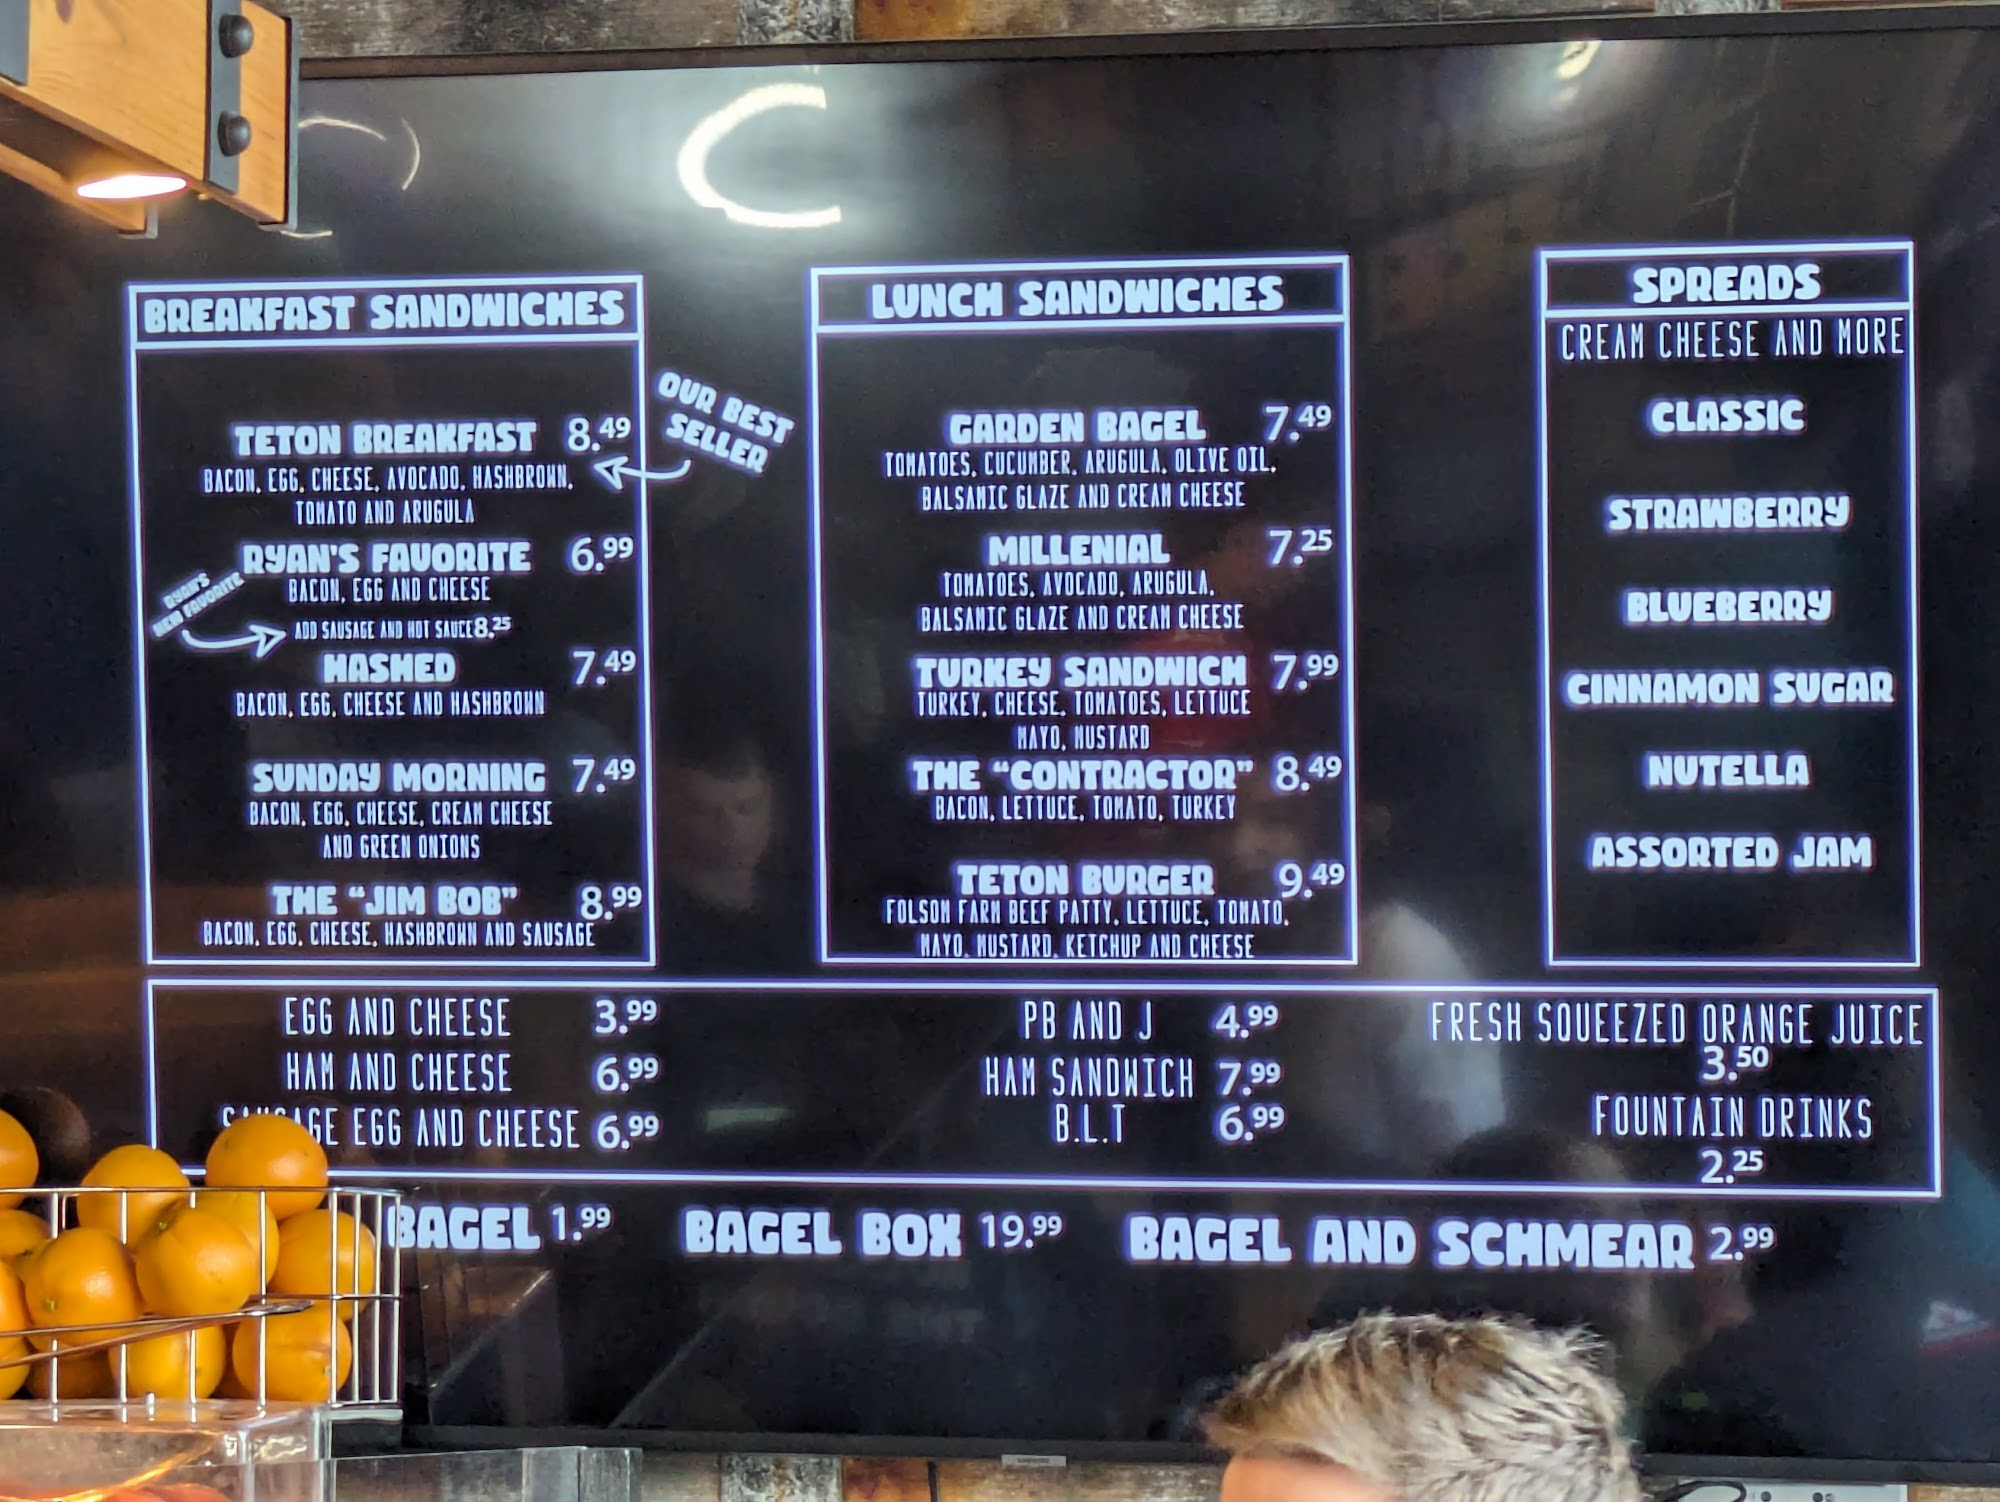 BREAKFAST SANDWICHES
TETON BREAKFAST 8.49
BACON, EGG, CHEESE, AVOCADO, HASHBROWN,
TOMATO AND ARUGULA
OUR BEST
SELLER
RYAN'S FAVORITE 6.99
BACON, EGG AND CHEESE
RYAN'S
NEW FAVORITE
ADD SAUSAGE AND HOT SAUCE 8.25
HASHED 7.49
BACON, EGG, CHEESE AND HASHBROWN
SUNDAY MORNING 7.49
BACON, EGG, CHEESE, CREAM CHEESE
AND GREEN ONIONS
THE "JIM BOB" 8.99
BACON, EGG, CHEESE, HASHBROWN AND SAUSAGE
LUNCH SANDWICHES
GARDEN BAGEL 7.49
TOMATOES, CUCUMBER, ARUGULA, OLIVE OIL,
BALSAMIC GLAZE AND CREAM CHEESE
MILLENIAL 7.25
TOMATOES, AVOCADO, ARUGULA,
BALSAMIC GLAZE AND CREAM CHEESE
TURKEY SANDWICH 7.99
TURKEY, CHEESE, TOMATOES, LETTUCE
MAYO, MUSTARD
THE "CONTRACTOR" 8.49
BACON, LETTUCE, TOMATO, TURKEY
TETON BURGER 9.49
FOLSOM FARM BEEF PATTY, LETTUCE, TOMATO,
MAYO, MUSTARD, KETCHUP AND CHEESE
SPREADS
CREAM CHEESE AND MORE
CLASSIC
STRAWBERRY
BLUEBERRY
CINNAMON SUGAR
NUTELLA
ASSORTED JAM
EGG AND CHEESE 3.99
HAM AND CHEESE 6.99
SAUSAGE EGG AND CHEESE 6.99
PB AND J 4.99
HAM SANDWICH 7.99
B.L.T 6.99
FRESH SQUEEZED ORANGE JUICE
3.50
FOUNTAIN DRINKS
2.25
BAGEL 1.99 BAGEL BOX 19.99 BAGEL AND SCHMEAR 2.99